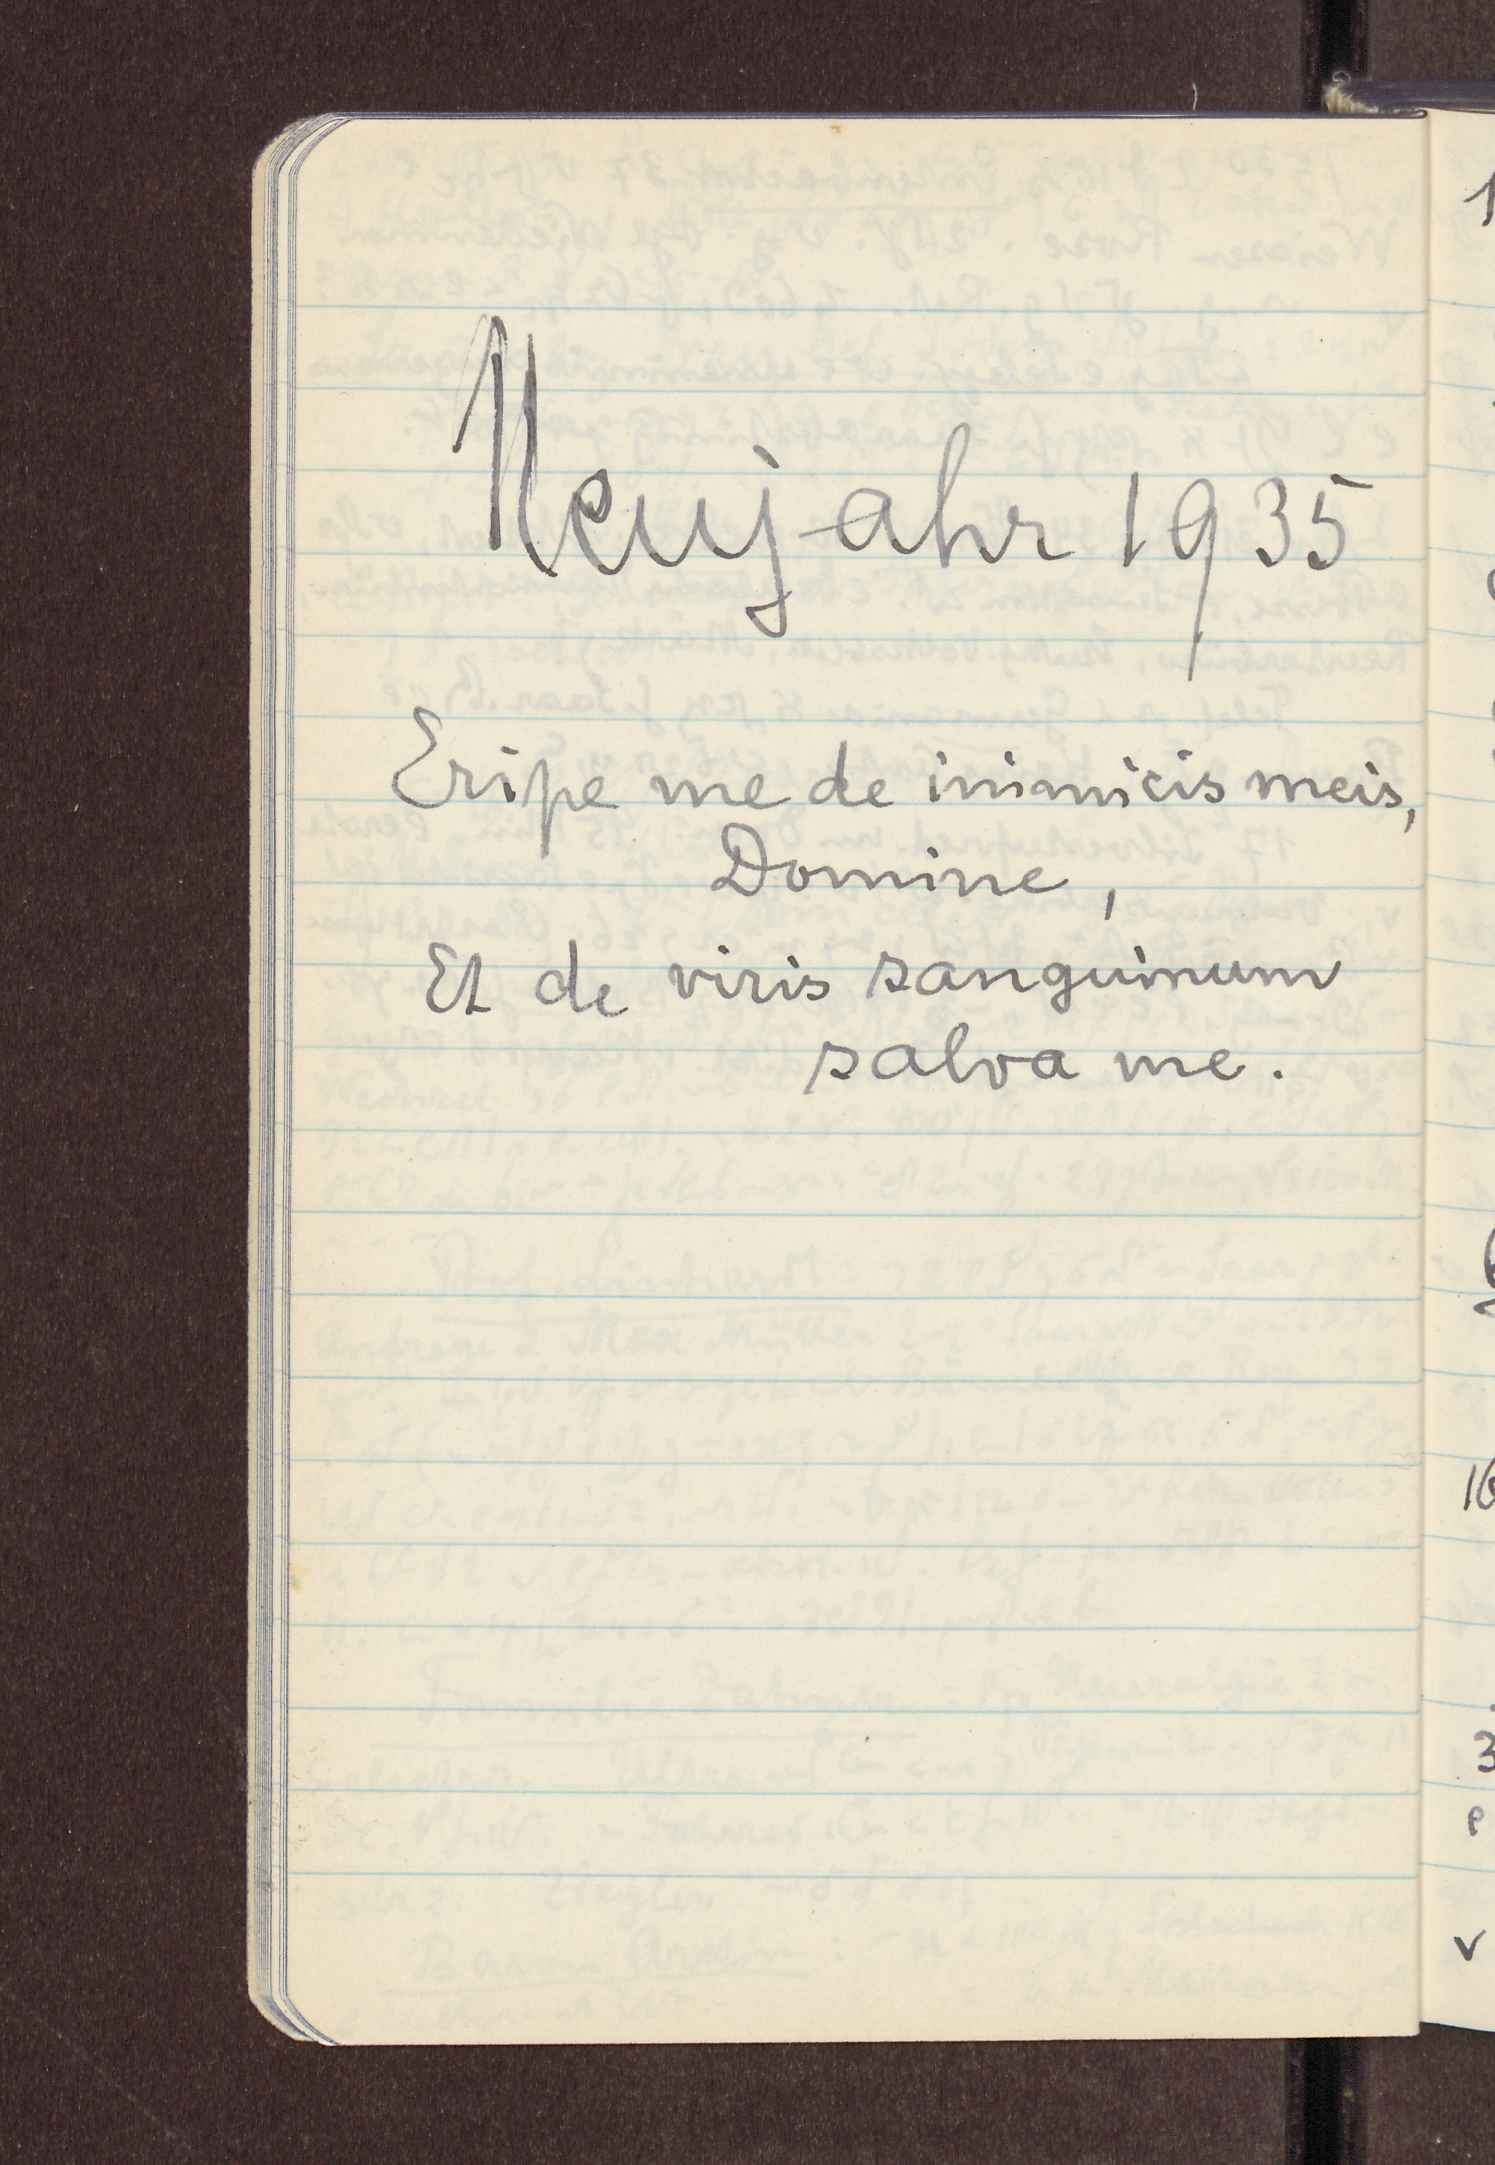 Neujahr 1935
Eripe me de inimicis meis,
Domine,
Et de viris sanguinum
salva me.